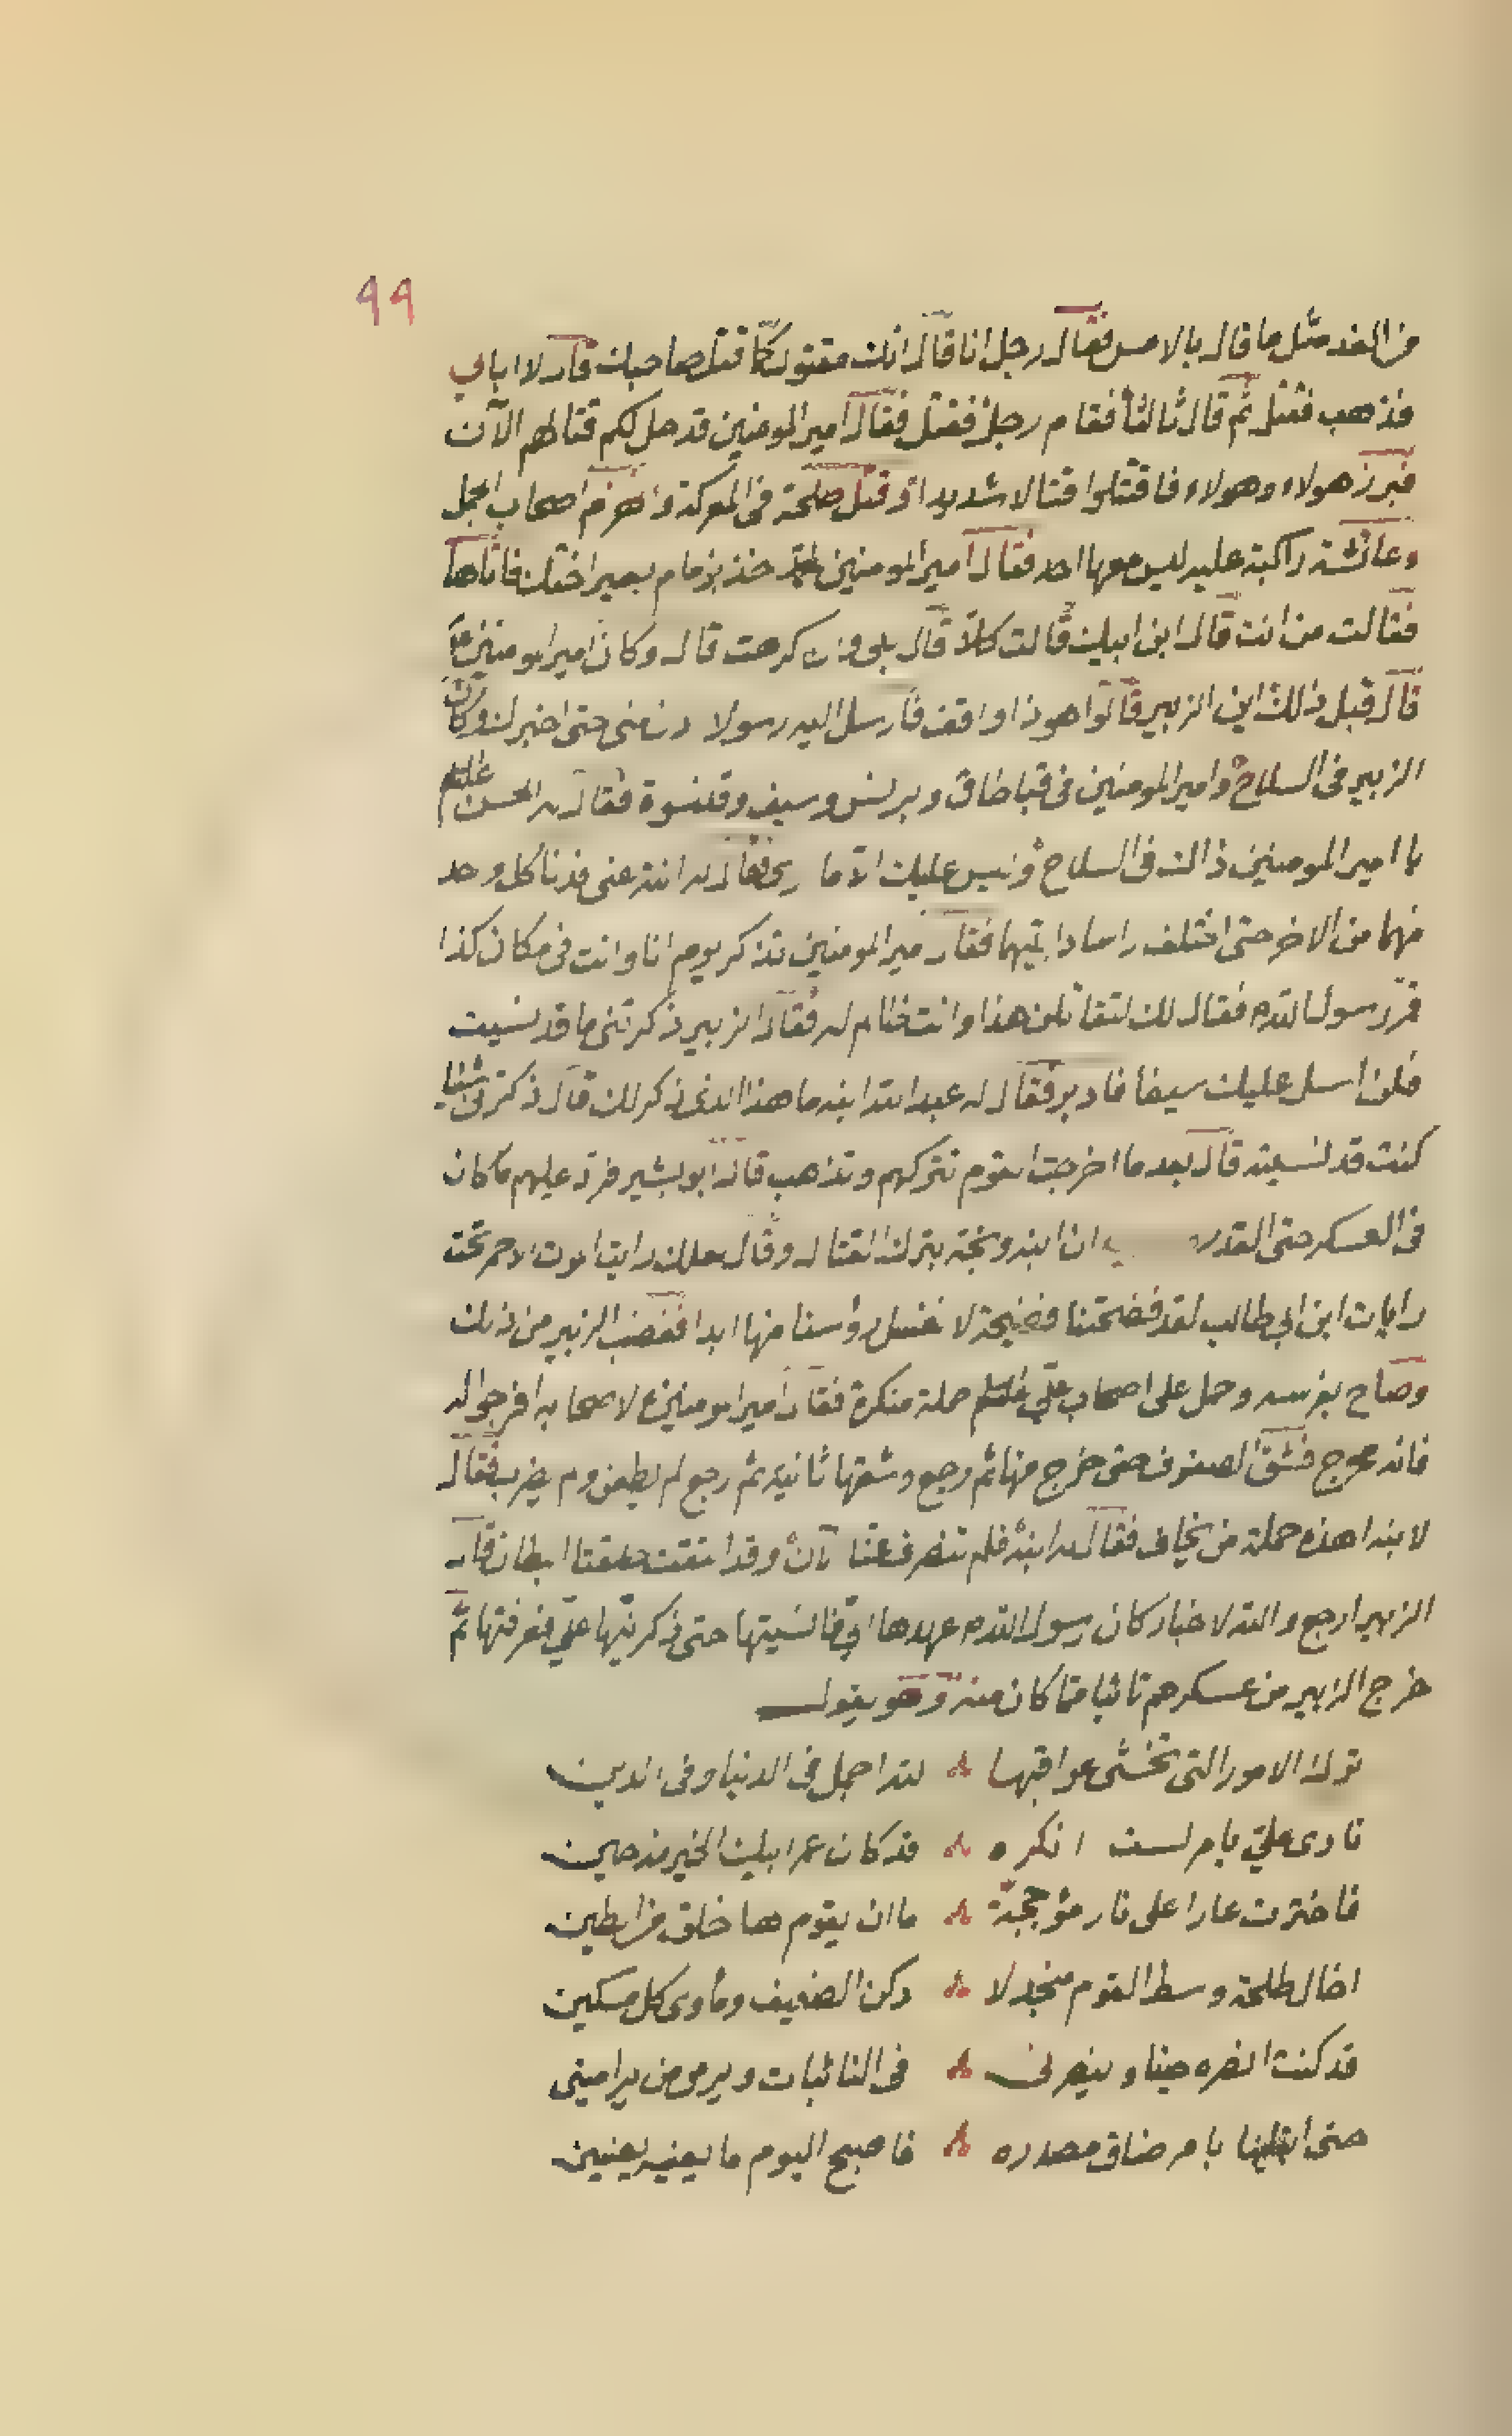 ٩٩
من الغد مثل ما قال بالامس فقال رجل انا قال انك مقتول كما قتل صاحبك قال لا ابالي
فذهب فقتل ثم قال ثالثا فقام رجل فقتل فقال امير المومنين قد حل لكم قتالهم الآن
فبرز هولاء وهولاء فاقتتلوا قتالا شديدا وقتل طلحة في المعركة وانهزم اصحاب الجمل
وعائشة راكبة عليه ليس معها احد فقال امير المومنين خذ بزمام بعير اختك فاتاها
فقالت من انت قال ابن ابيك قالت كلا قال بلى وان كرهت قال وكان امير المومنين ع
قال قبل ذلك اين الزبير قالوا هو ذا واقف فارسل اليه رسولا دن مني حتى اخبرك وكان
الزبير في السلاح وامير المومنين في قبا طاق وبرنس وسيف وقلنسوة فقال له الحسن عليه السلم
يا امير المومنين ذاك في السلاح وليس عليك الا ما رى فقال له انته عني فدنا كل وحد
منهما من الاخر حتى اختلف راسا دابتيهما فقال مير المومنين تذكر يوم انا وانت في مكان كذا
فمر رسول الله فقال لك لتقاتلن هذا وانت ظالم له فقال الزبير ذكرتني ما قد نسيت
فلن اسل عليك سيفا فادبر فقال له عبد الله ابنه ما هذا الذي ذكر لك قال ذكرني شيئا
كنت قد نسيته قال بعد ما اخرجت القوم تتركهم وتذهب قال ابو بشير فرد عليهم ما كان
في العسكر حتى القدر ان ابنه وبخه بترك القتال وقال لعلك رايت الموت الاحمر تحت
رايات ابن ابي طالب لقد فضحتنا فضيحة لا نغسل رؤسنا منها ابدا فغضب الزبير من ذلك
وصاح بفرسه وحمل على اصحاب علي عليه السلم حملة منكرة فقال امير المومنين ع لاصحابه افرجوا له
فانه محوج فشق الصفوف حتى خرج منها ثم رجع وشقها ثانية ثم رجع لم يطعن ولم يضرب فقال
لابنه اهذه حملة من يخاف فقال له ابنه فلم تنصرف عنا الآن وقد التقت حلقتا البطان قال
الزبير ارجع والله لاخبار كان رسول الله عهدها الي فانسيتها حتى ذكرنيها علي فعرفتها ثم
خرج الزبير من عسكرهم تائبا مما كان منه وهو يقول
ترك الامور التي تخشى عواقبها ۸ لله اجمل في الدنيا وفي الدين
نادى علي بامر لست انكره ۸ قد كان عمر ابيك الخير مذ حين
فاخترت عارا على نار مؤججة ۸ ما ان يقوم لها خلق من الطين
اخال طلحة وسط القوم منجدلا ۸ ركن الضعيف وماوى كل مسكين
قد كنت انصره حينا وينصرني ۸ في النائبات ويرمي من يراميني
حتى ابتلينا بامر ضاق مصدره ۸ فاصبح اليوم ما يعنيه يعنيني